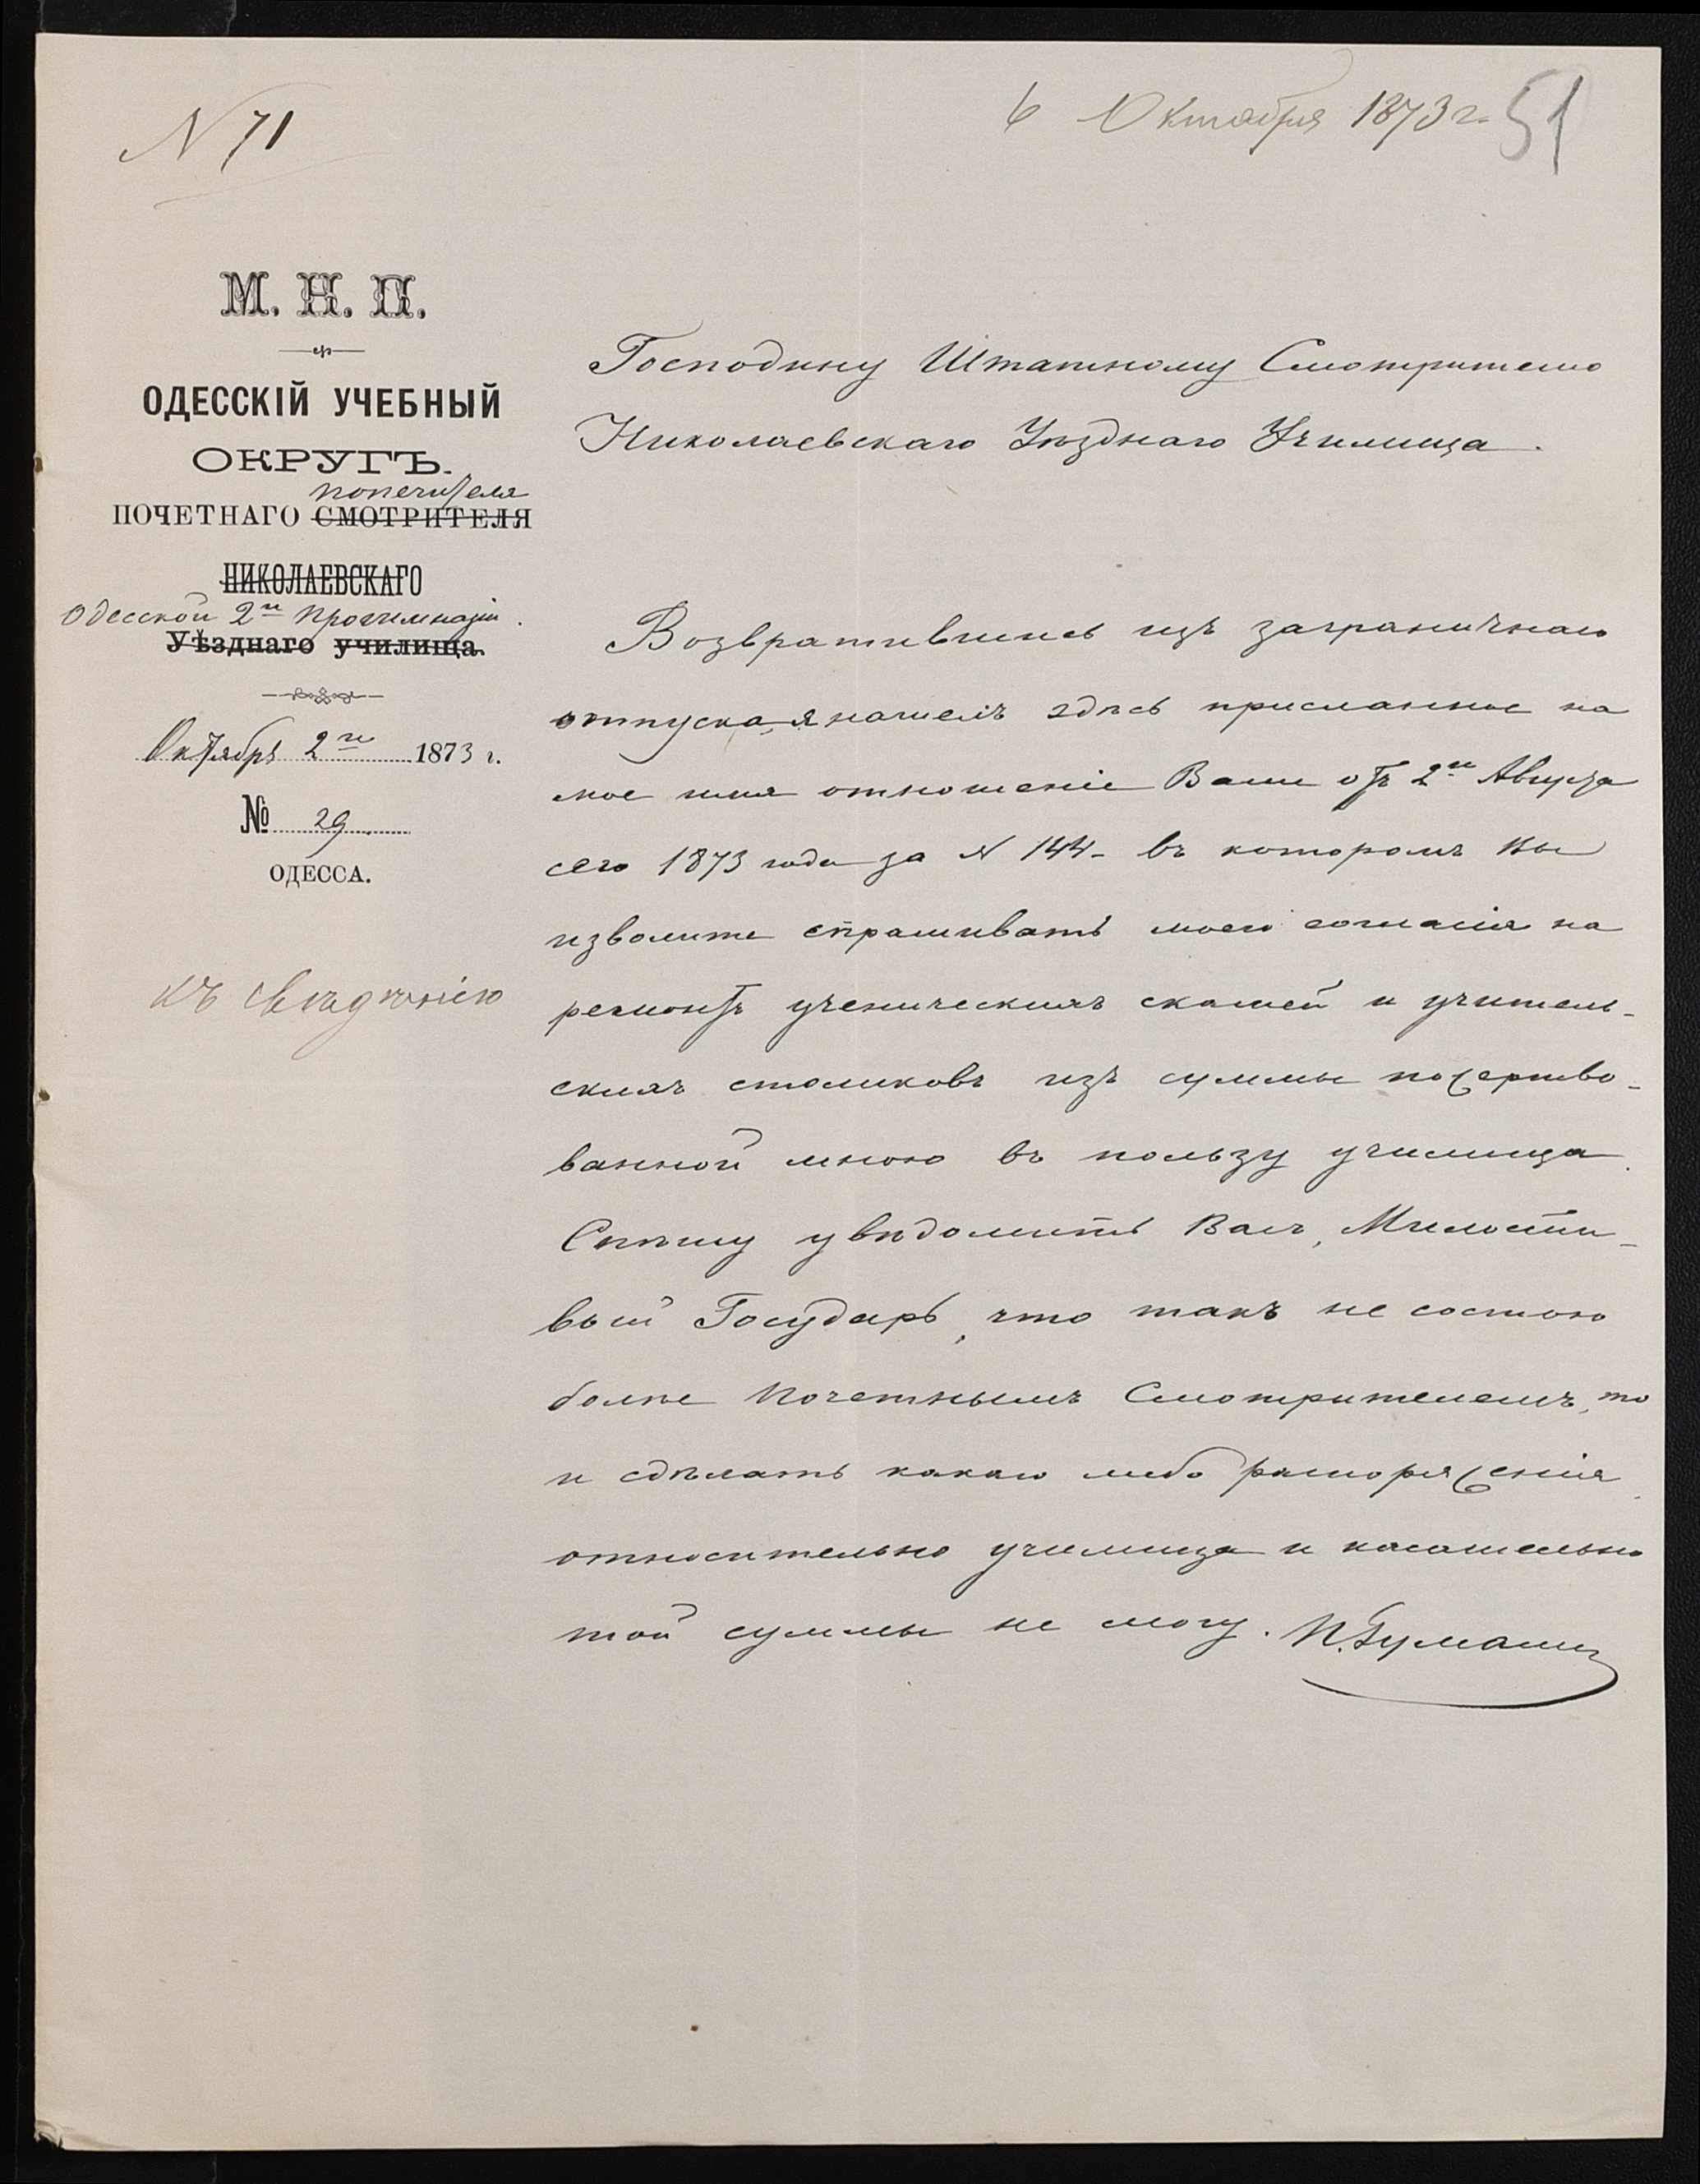 N 71
6 Октября 1873 г.
51
М. Н. П.
ОДЕССКІЙ УЧЕБНЫЙ
ОКРУГЪ.
попечителя
ПОЧЕТНАГО СМОТРИТЕЛЯ
НИКОЛАЕВСКАГО
Одесской 2й Прогимназіи.
Уѣзднаго училища.
Октябрь 2го 1873 г.
№ 29
ОДЕССА.
Къ свѣдѣнію
Господину Штатному Смотрителю
Николаевскаго Уѣзднаго Училища.
Возвратившись изъ заграничнаго
отпуска, я нашелъ здѣсь присланное на
мое имя отношеніе Ваше отъ 2го Августа
сего 1873 года за N 144 - въ которомъ Вы
изволите спрашивать моего согласія на
ремонтъ ученическихъ скамей и учитель-
скихъ столиковъ изъ суммы пожертво-
ванной мною въ пользу училища.
Спѣшу увѣдомить Васъ, Милости-
вый Государь, что такъ не состою
болѣе Почетнымъ Смотрителемъ, то
и сдѣлать какого либо распоряженія
относительно училища и касательно
той суммы не могу.